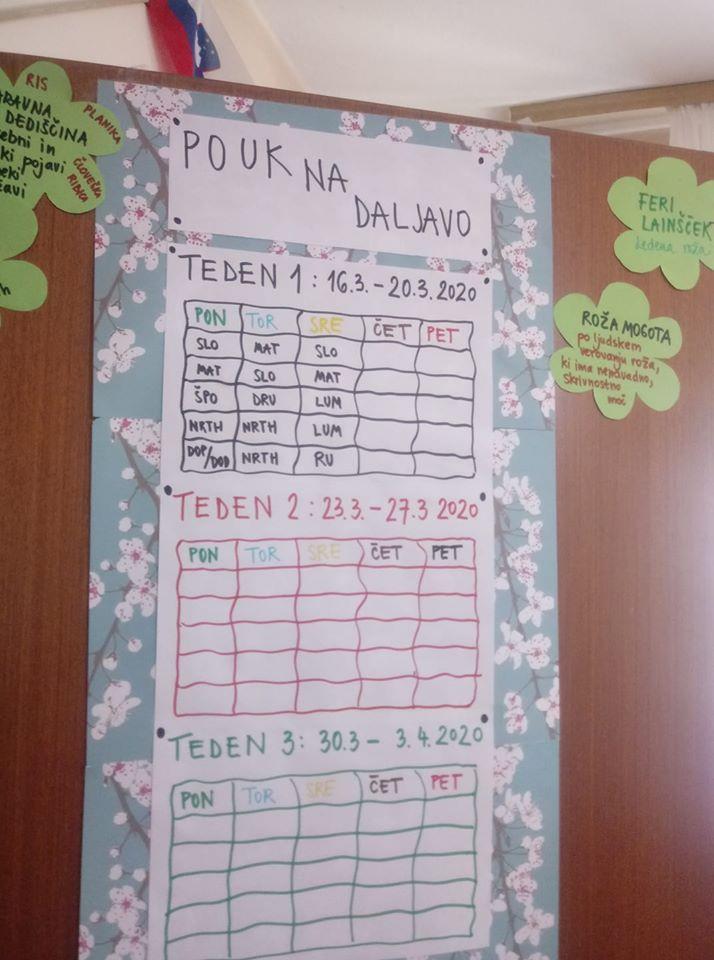 RIS
PLANIKA
DEDIŠČINA
ČLOVEŠKA
RIBICA
POUK NA
DALJAVO
TEDEN 1: 16.3. - 20.3. 2020
PON TOR SRE ČET PET
SLO MAT SLO
MAT SLO MAT
ŠPO DRU LUM
NRTH NRTH LUM
DOP/DOD NRTH RU
TEDEN 2: 23.3. - 27.3 2020
PON TOR SRE ČET PET
TEDEN 3: 30.3 - 3.4.2020
PON TOR SRE ČET PET
FERI
LAINŠČEK
Ledena roža
ROŽA MOGOTA
po ljudskem
verovanju roža,
ki ima nenavadno,
skrivnostno
moč